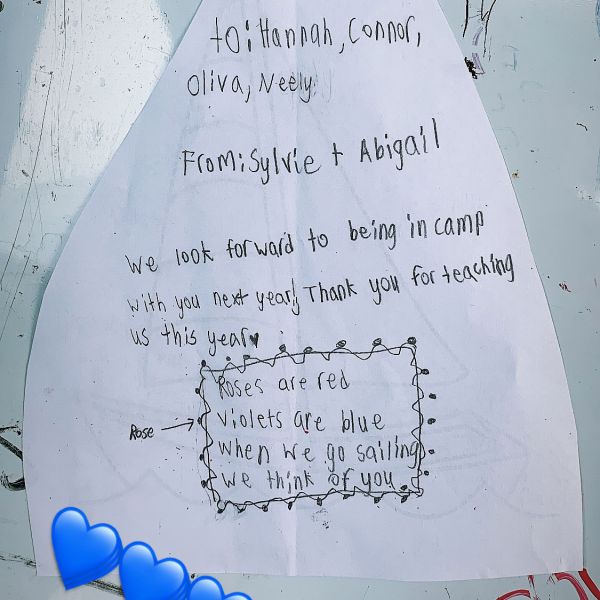 to: Hannah, Connor,
Oliva, Neely
From: Sylvie + Abigail
We look forward to being in camp
with you next year! Thank you for teaching
us this year
Roses are red
Violets are blue
When we go sailing
we think of you
Rose